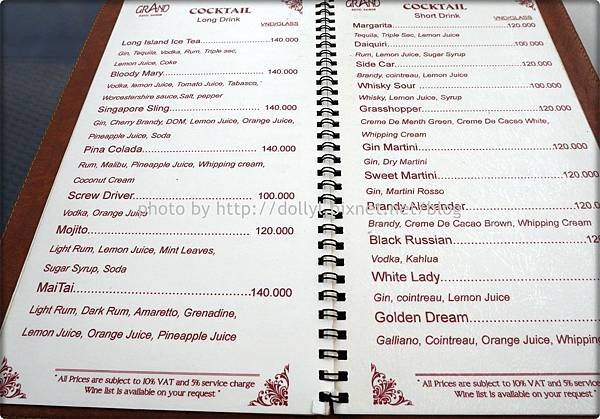 GRAND
COCKTAIL
HOTEL SAIGON
Long Drink
VND/GLASS
Long Island Ice Tea 140.000
Gin, Tequila, Vodka, Rum, Triple sec,
Lemon Juice, Coke
Bloody Mary 140.000
Vodka, lemon Juice, Tomato Juice, Tabasco,
Worcestershire sauce,Salt, pepper
Singapore Sling 140.000
Gin, Cherry Brandy, DOM, Lemon Juice, Orange Juice,
Pineapple Juice, Soda
Pina Colada 140.000
Rum, Malibu, Pineapple Juice, Whipping cream,
Coconut Cream
Screw Driver 100.000
Vodka, Orange Juice
Mojito 120.000
Light Rum, Lemon Juice, Mint Leaves,
Sugar Syrup, Soda
MaiTai 140.000
Light Rum, Dark Rum, Amaretto, Grenadine,
Lemon Juice, Orange Juice, Pineapple Juice
* All Prices are subject to 10% VAT and 5% service charge
Wine list is available on your request *
GRAND
COCKTAIL
Short Drink
VND/GLASS
Margarita 120.000
Tequila, Triple Sec, Lemon Juice
Daiquiri 100.000
Rum, Lemon Juice, Sugar Syrup
Side Car 120.000
Brandy, cointreau, Lemon Juice
Whisky Sour 100.000
Whisky, Lemon Juice, Syrup
Grasshopper 120.000
Creme De Menth Green, Creme De Cacao White,
Whipping Cream
Gin Martini 120.000
Gin, Dry Martini
Sweet Martini 120.000
Gin, Martini Rosso
Brandy Alexander 120.000
Brandy, Creme De Cacao Brown, Whipping Cream
Black Russian 120.00
Vodka, Kahlua
White Lady 120.00
Gin, cointreau, Lemon Juice
Golden Dream
Galliano, Cointreau, Orange Juice, Whipping
* All Prices are subject to 10% VAT and 5% service
Wine list is available on your request *
photo by